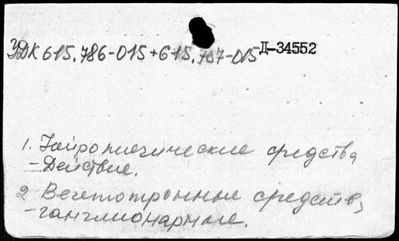 УДК 615.786-015+615.787-015 Д-34552
1. Нейроплегические средства
- Действие.
2 Вегетотропные средства,
- ганглионарные.